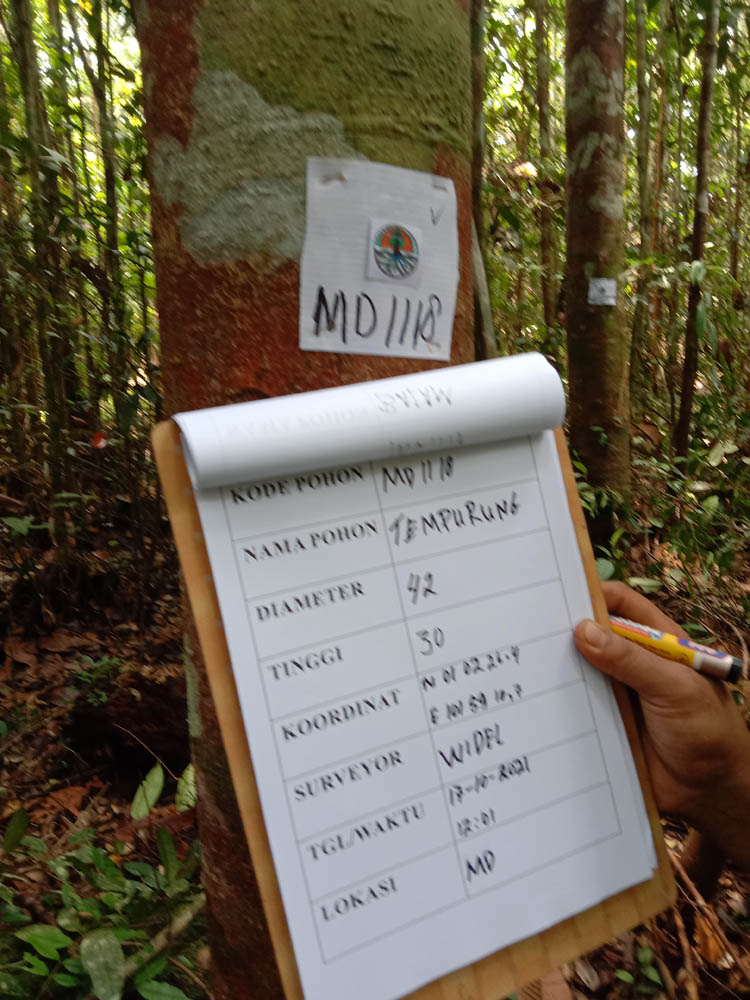 V
MD1118
KODE POHON MD1118
NAMA POHON TEMPURUNG
DIAMETER 42
TINGGI 30
KOORDINAT N 01 02 26.4
E 101 59 10,7
SURVEYOR WIDEL
TGL/WAKTU 17-10-2021
12:01
LOKASI MD